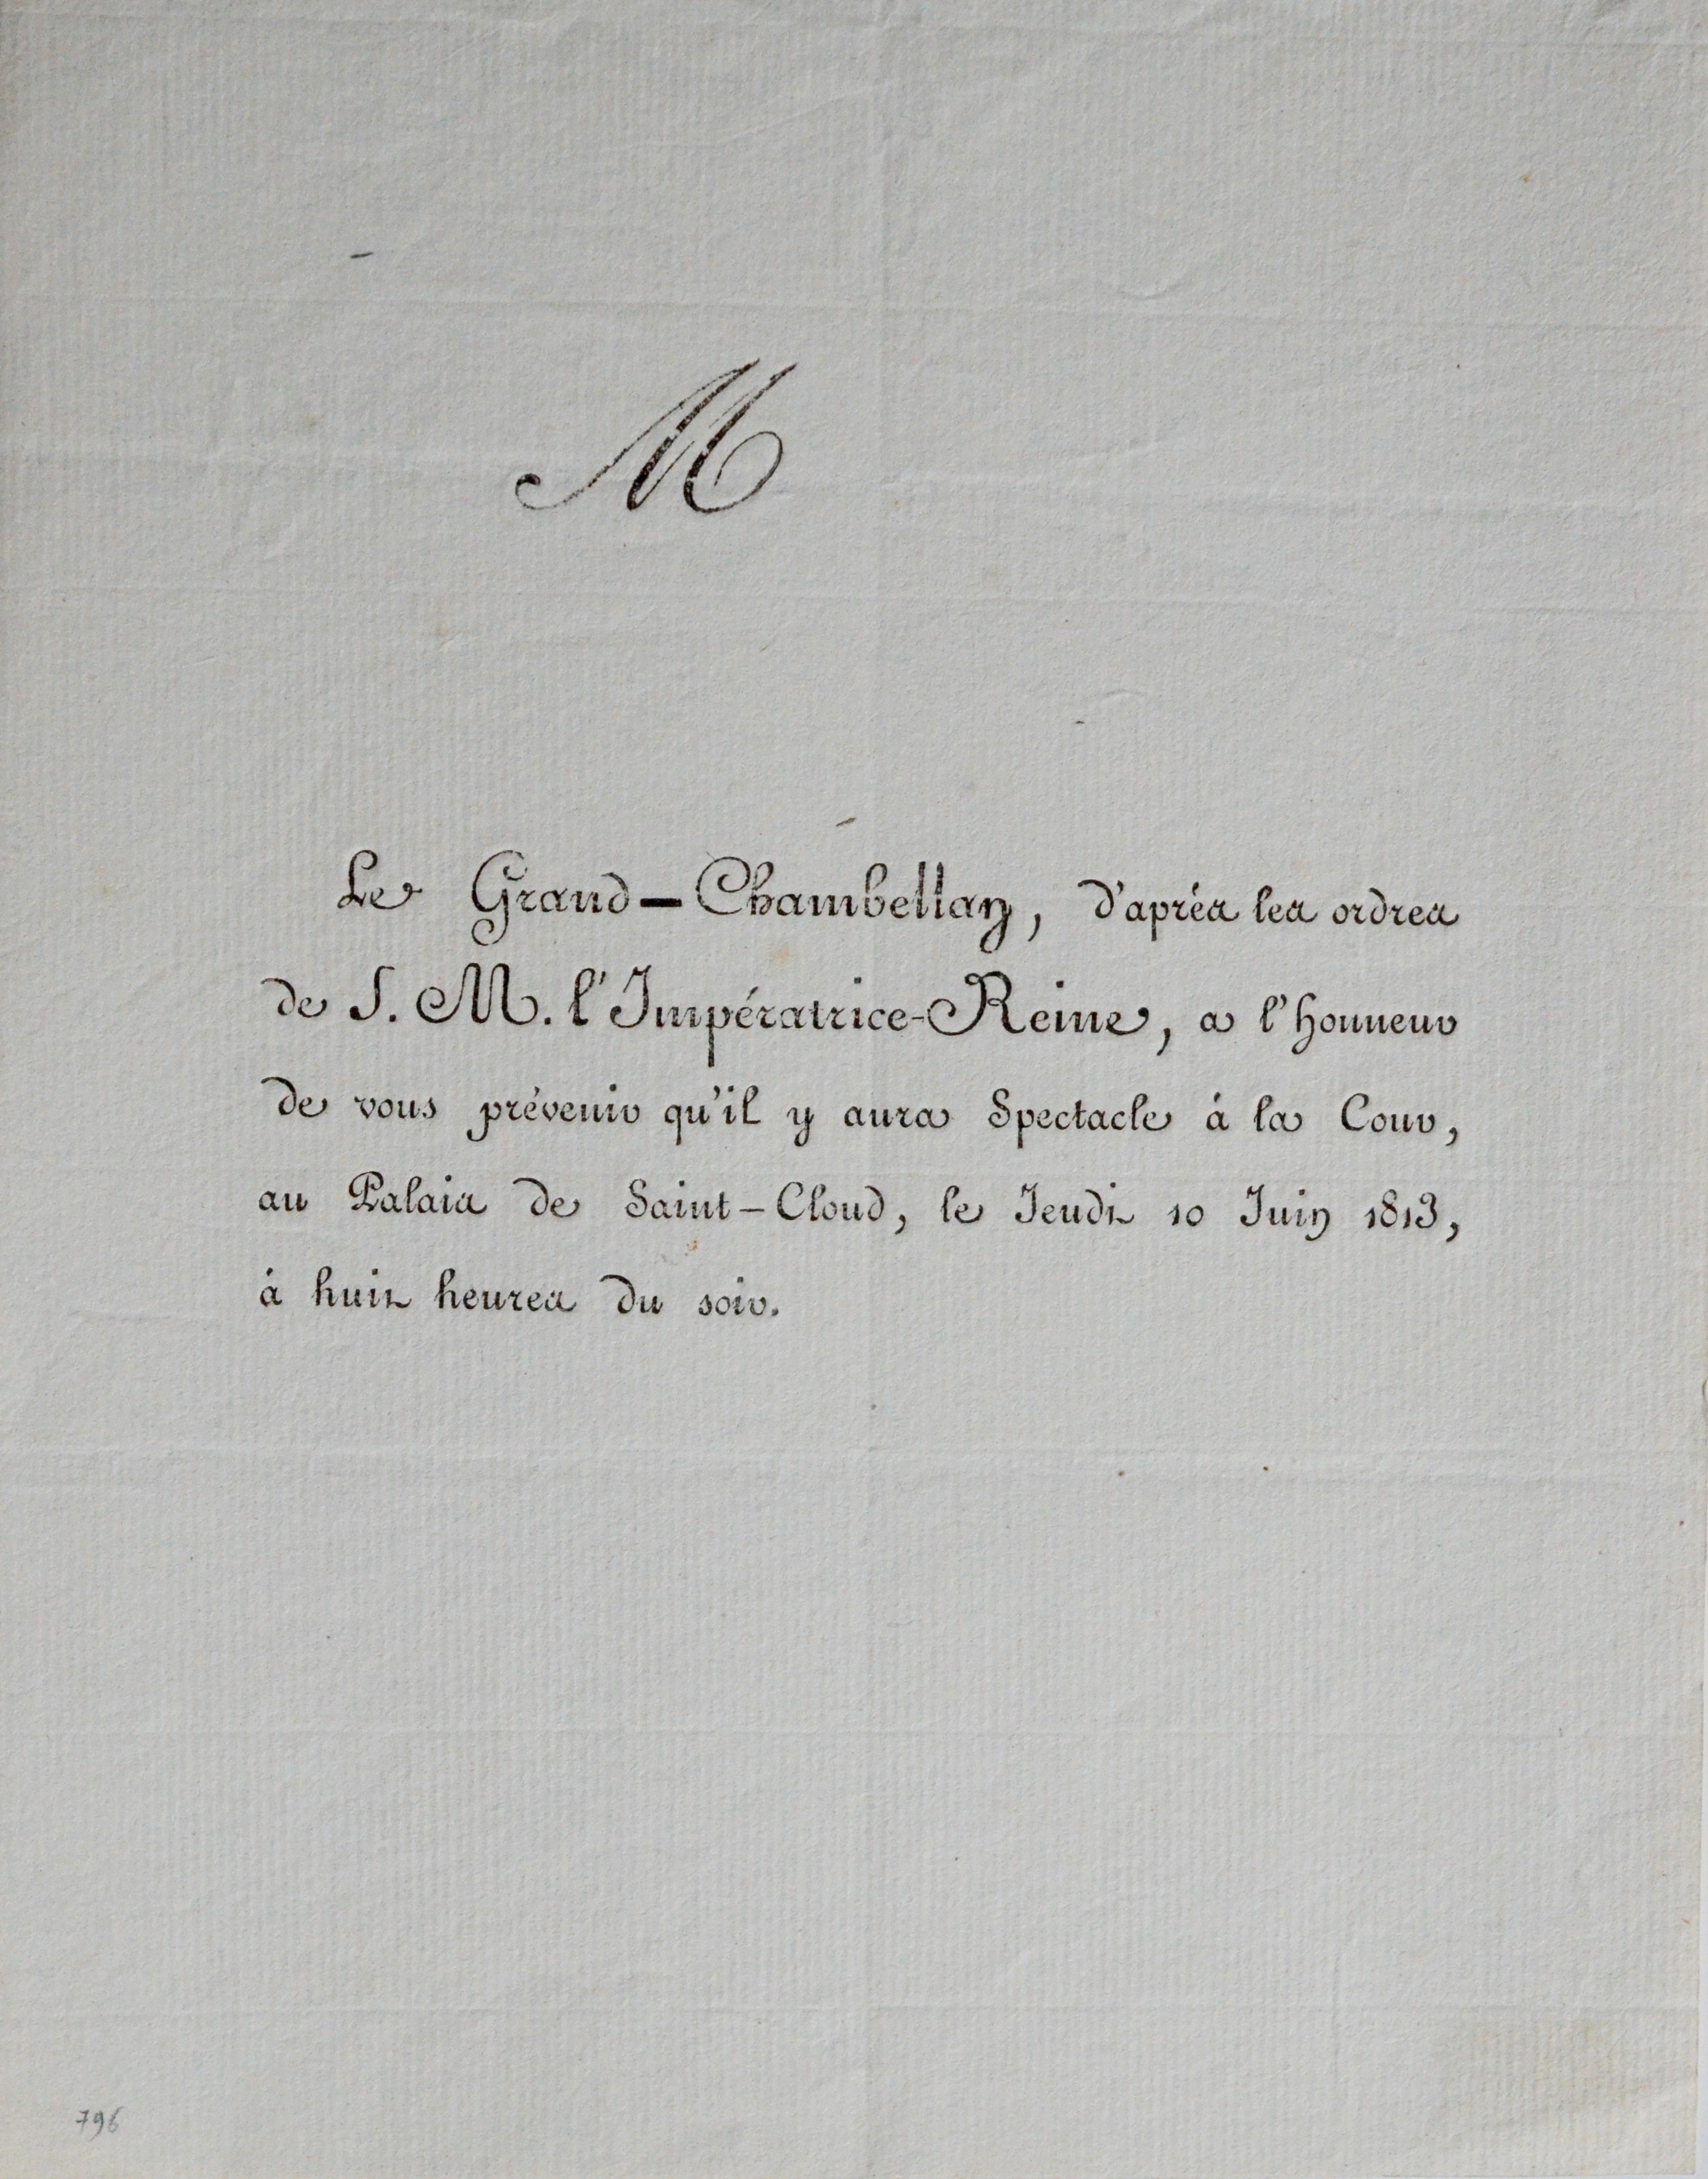 M
Le Grand-Chambellan, d'après les ordres
de S. M. l'Impératrice-Reine, a l'honneur
de vous prévenir qu'il y aura Spectacle à la Cour,
au Palais de Saint-Cloud, le Jeudi 10 Juin 1813,
à huit heures du soir.
796